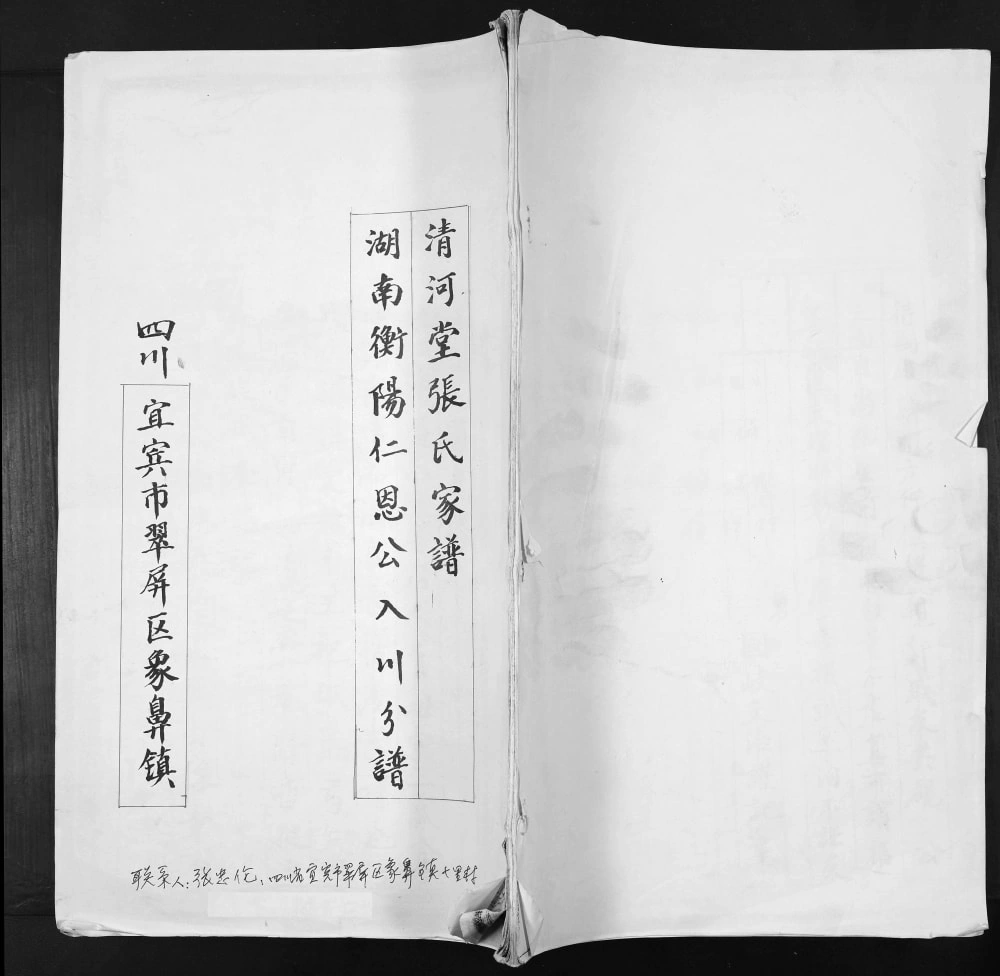 清河堂張氏家譜
湖南衡陽仁恩公入川分譜
四川
宜宾市翠屏区象鼻镇
联系人:张忠伦,四川省宜宾市翠屏区象鼻镇七里村